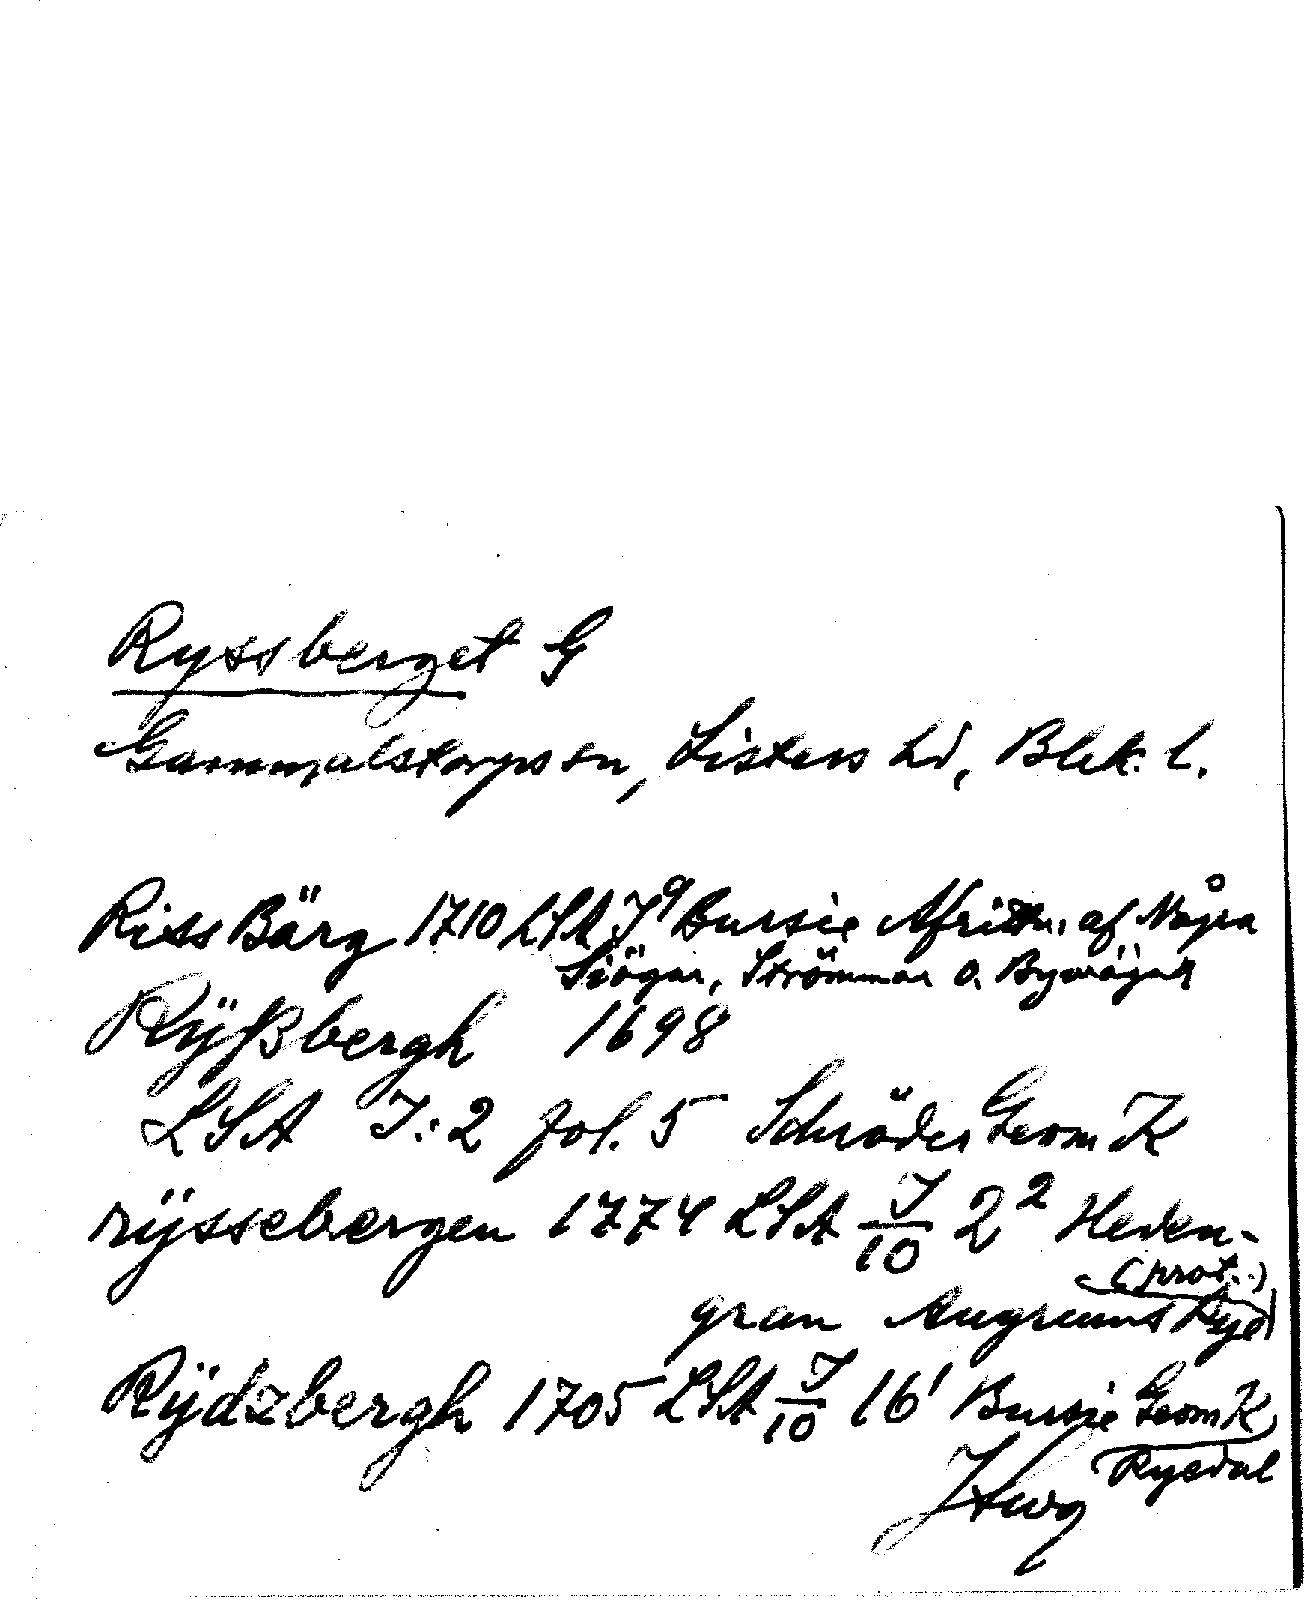 Ryssberget G
Gammalstorps sn, Listers hd, Blek. l.
Riss Bärg 1710 LSA J⁹ Bursie Afrittn. af Några
Siögar, Strömmar o. Bywägar
Rÿßbergh 1698
LSA J:2 fol. 5 Schröder Geom K
rÿssebergen 1774 LSA J/10 2² Heden-
(prot.)
gran Augrums Rye
Rÿdzbergh 1705 LSA J/10 16¹ Bursie Geom K
Ryedal